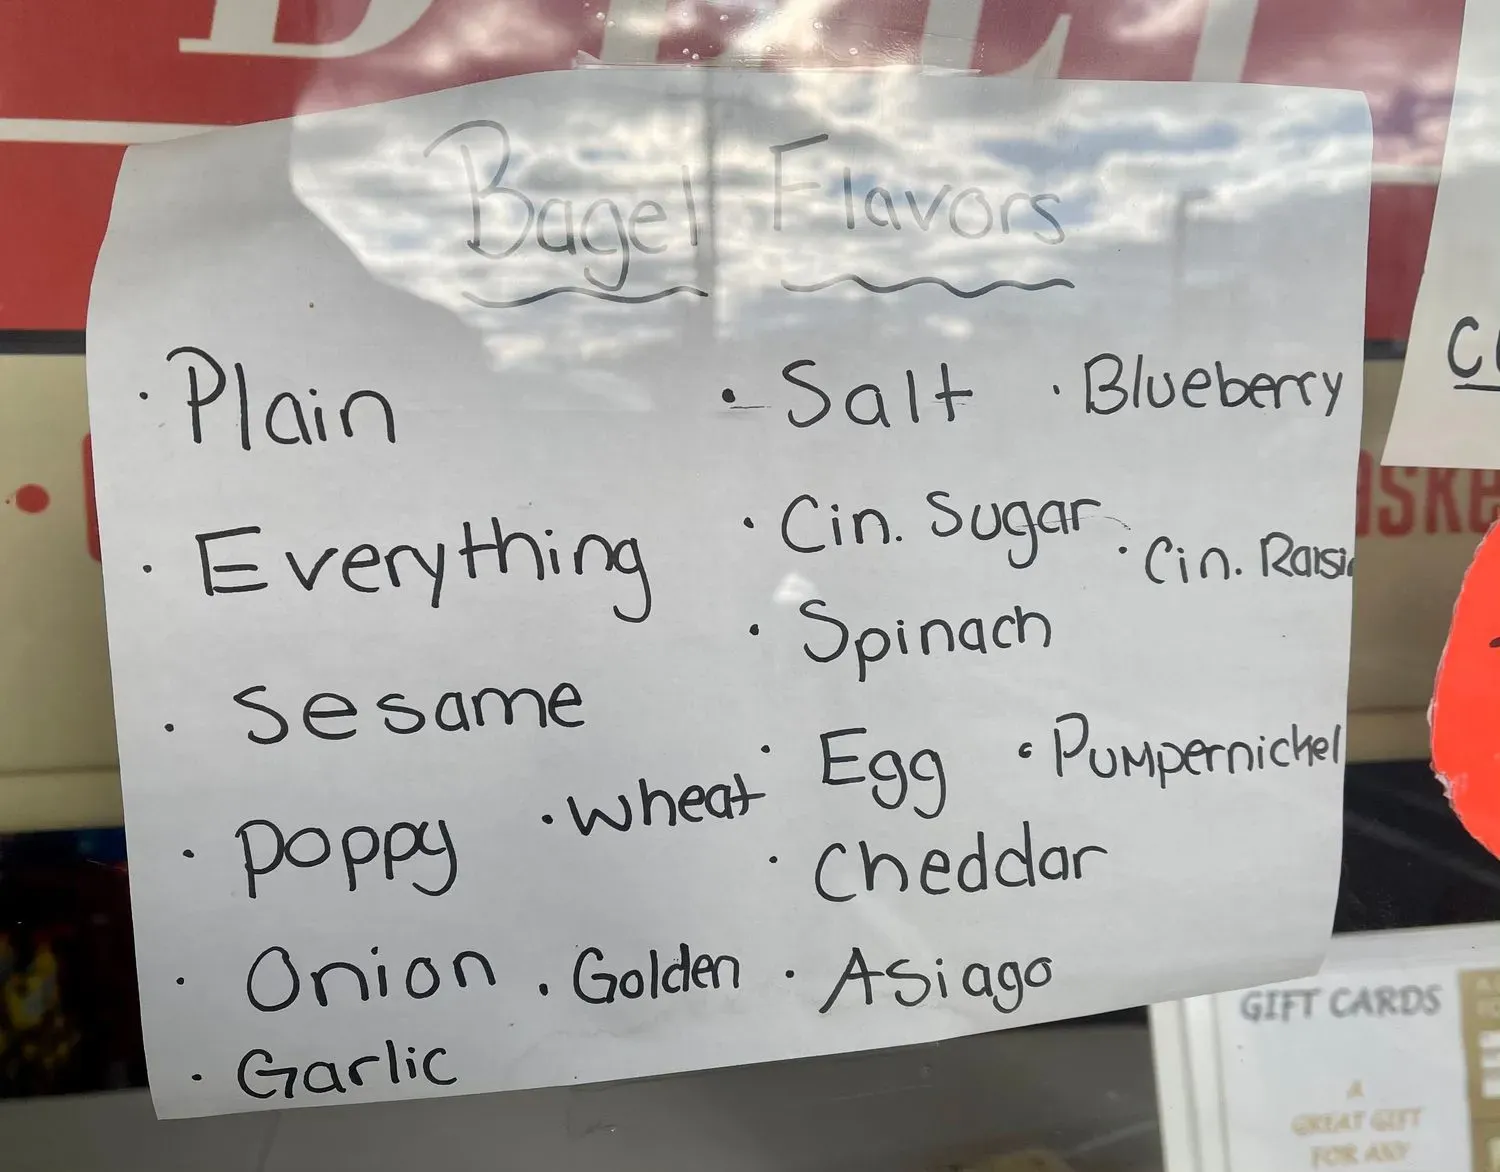 DELI
Bagel Flavors
· Plain
· Everything
· Sesame
· Poppy
· Wheat
· Onion
· Golden
· Garlic
· Salt
· Blueberry
· Cin. Sugar
· Cin. Raisin
· Spinach
· Egg
· Pumpernickel
· Cheddar
· Asiago
GIFT CARDS
A
GREAT GIFT
FOR ANY